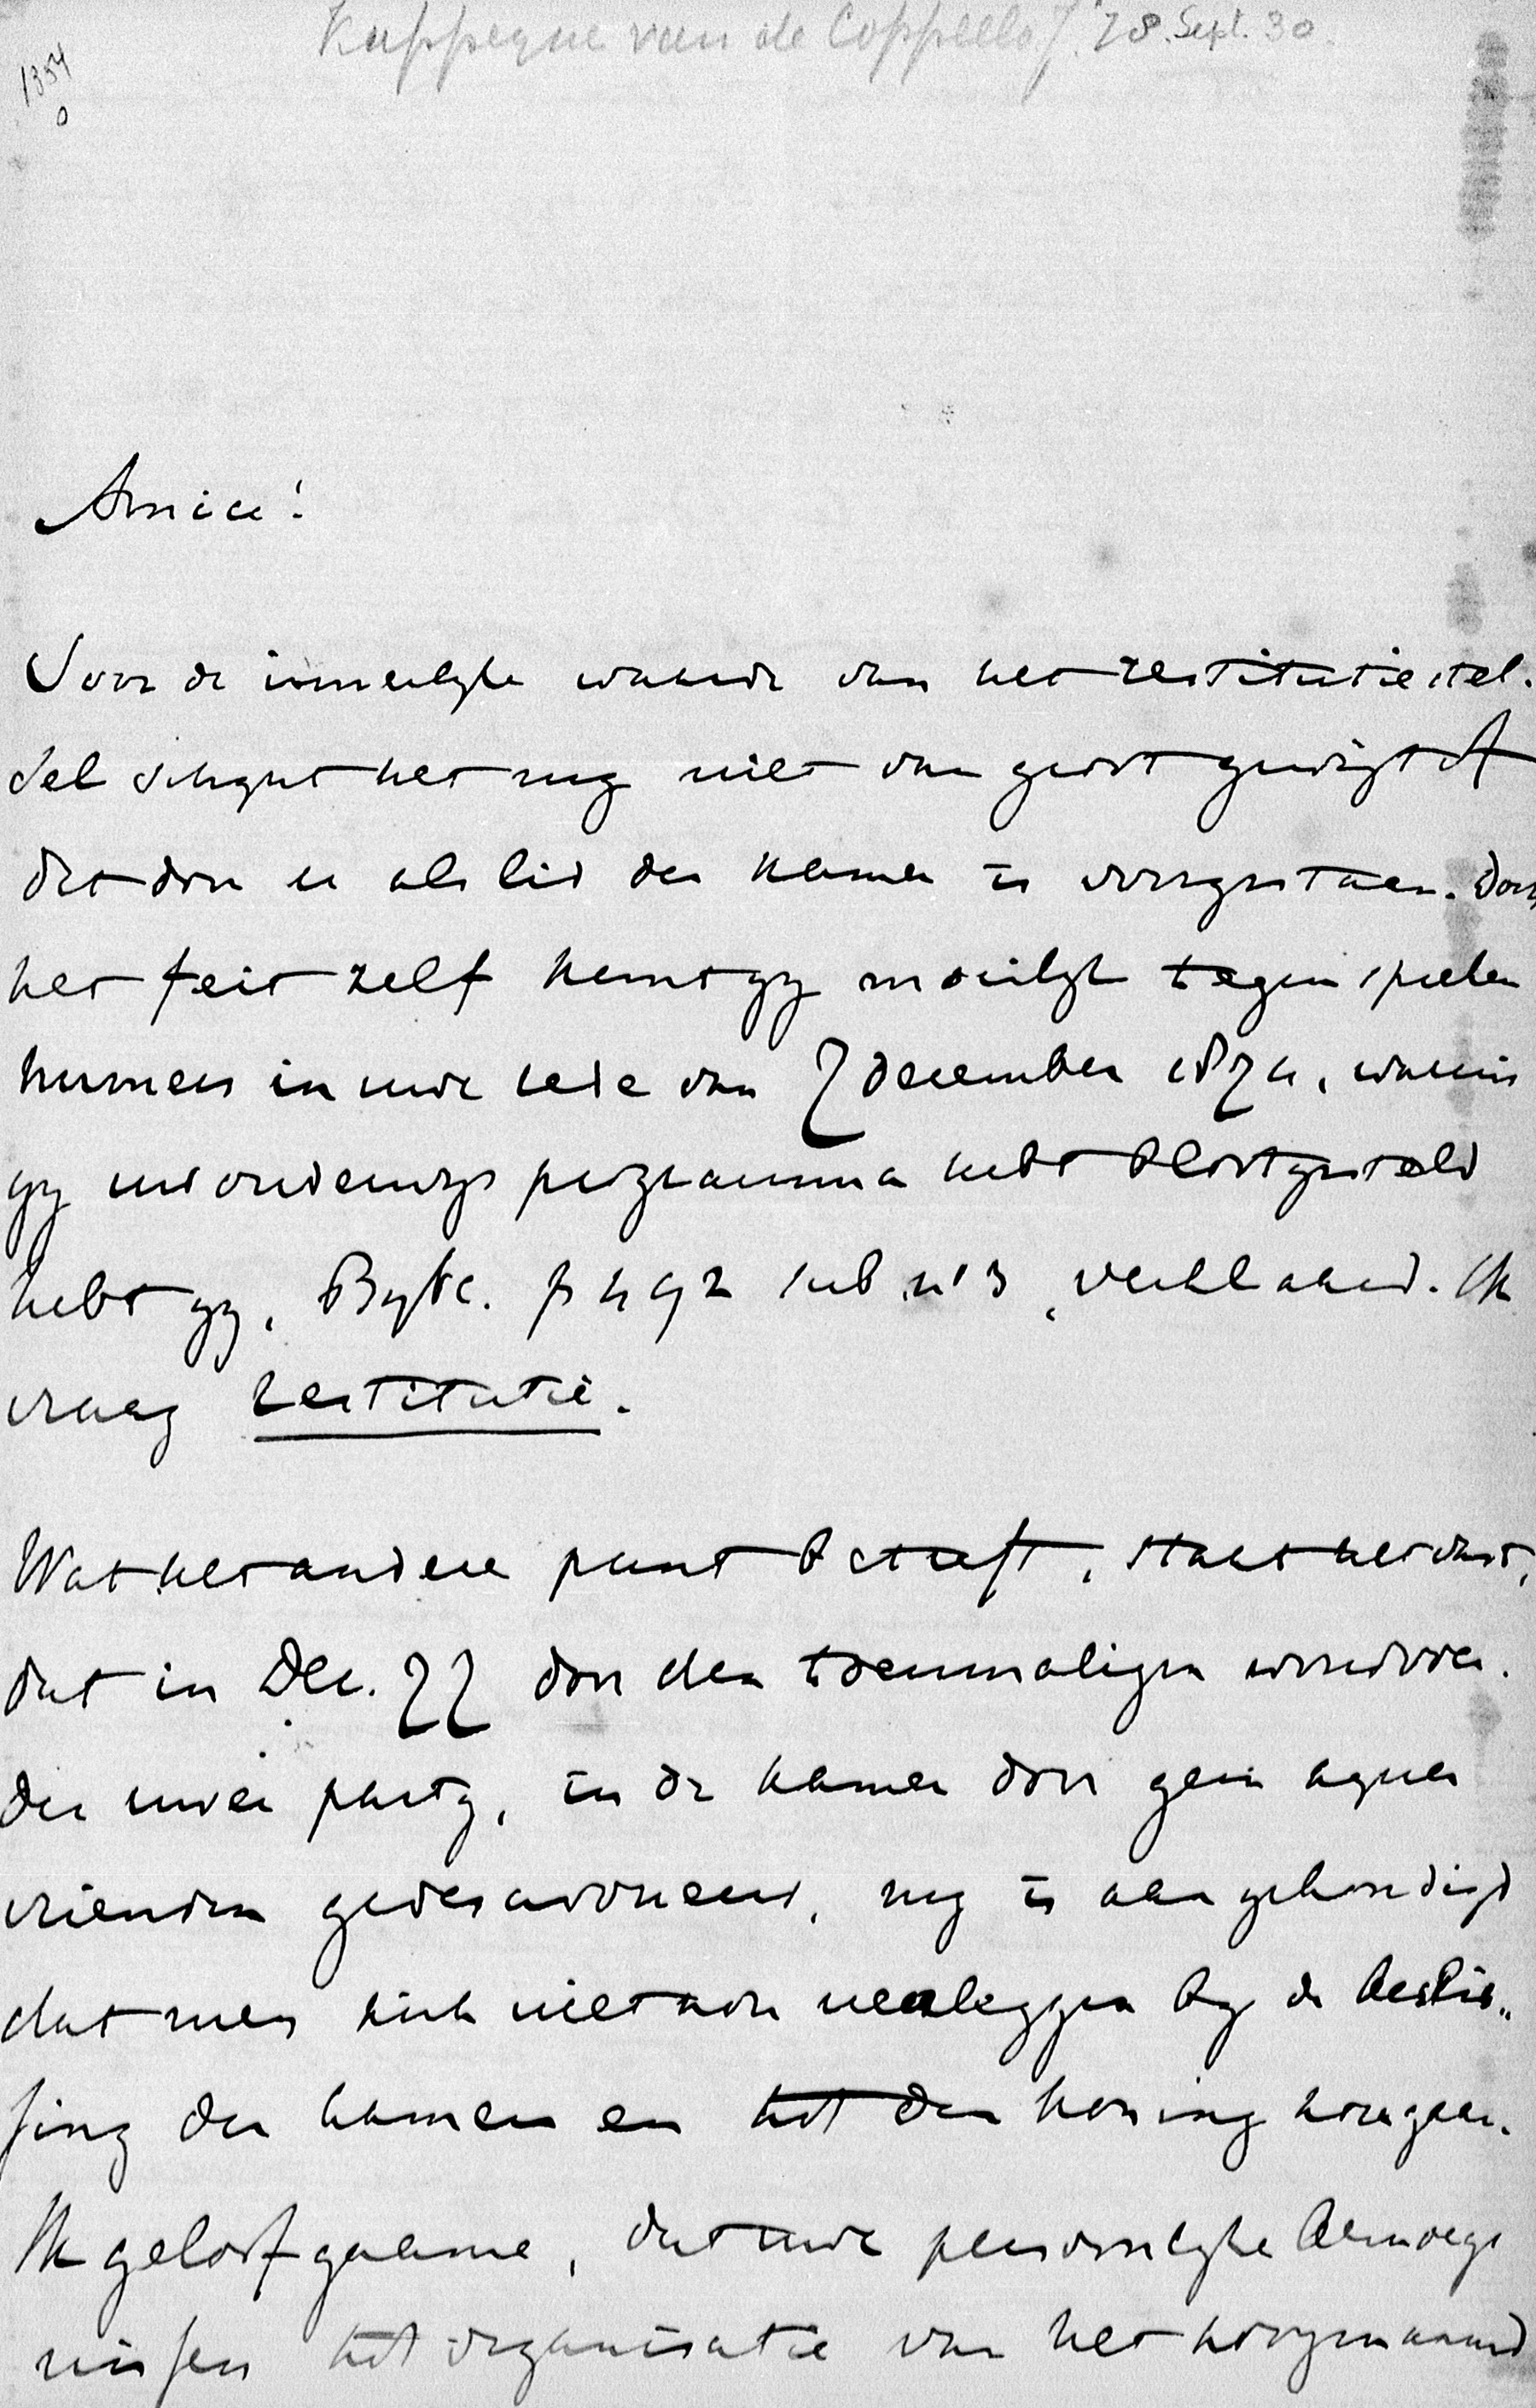 Kappeyne van de Coppello J. 28. Sept. 30.
1354
0
Amice!
Voor de innerlyke waarde van het restitutiestel.
sel schynt het my niet van groot gewigt of
dit door u als lid der Kamer is voorgestaan. Doch
het feit zelf kunt gy moeilyk tegenspreken
Immers in uwe rede van 7 December 1874, waarin
gy uw onderwys programma hebt blootgesteld
hebt gy, Bybl. p 492 sub no 3, verklaard. Ik
vraag restitutie.
Wat het andere punt betreft, staat het vast,
dat in Dec. 77 door den toenmaligen woordvoer.
der uwer party, in de kamer door geen zyner
vrienden gedesavoueerd, my is aangekondigd
dat men zich niet zou nederleggen by de beslis„
sing der kamers en tot den koning zou gaan.
Ik geloof gaarne, dat uwe persoonlyke bemoeye
nissen tot organisatie van het zoogenaamd